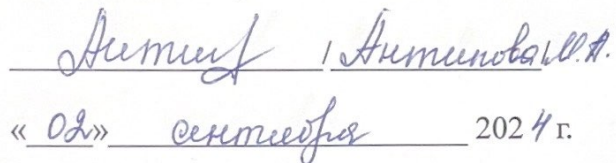 Антип / Антипова М.А.
« 02» сентября 2024 г.